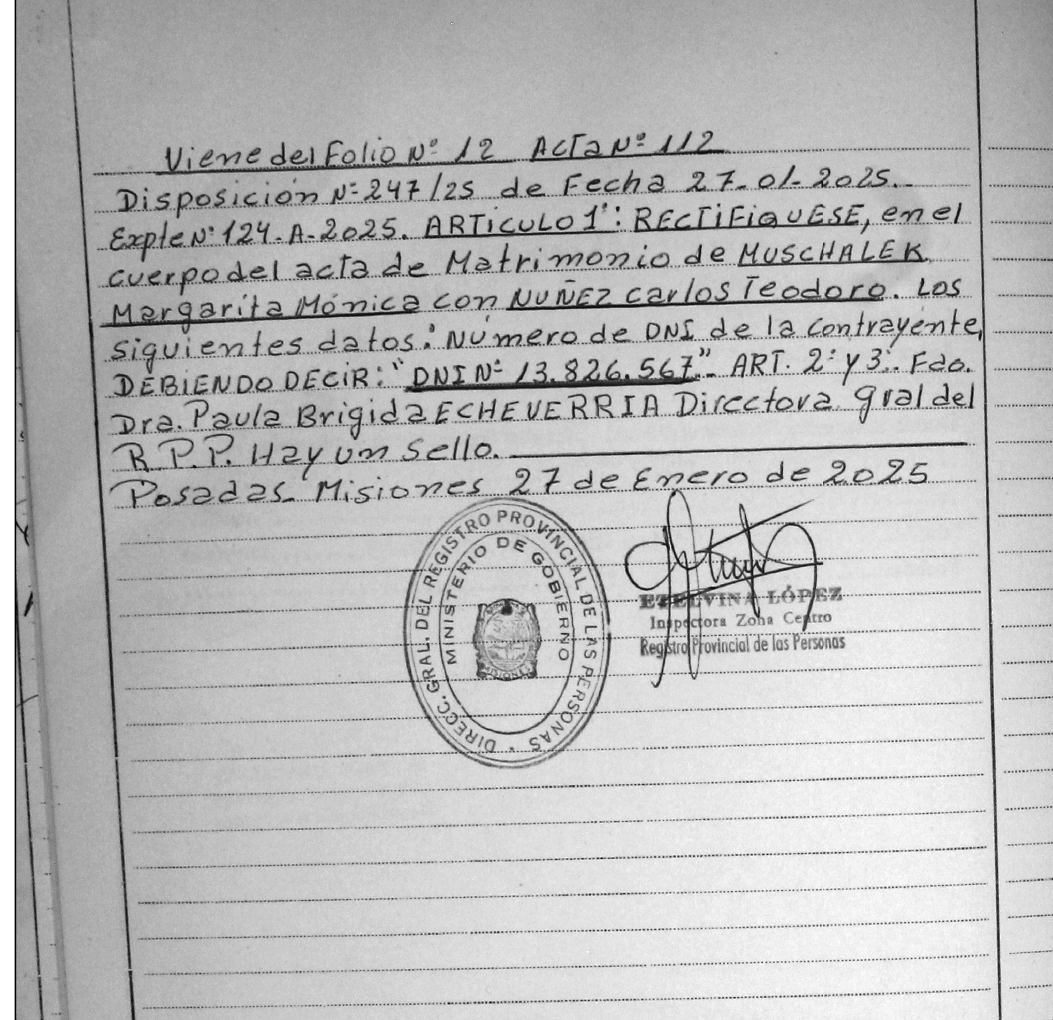 Viene del Folio Nº 12 ACTA Nº 112
Disposición Nº 247/25 de Fecha 27-01-2025.-
Expte Nº 124-A-2025. ARTICULO 1º: RECTIFIQUESE, en el
cuerpo del acta de Matrimonio de MUSCHALEK
Margarita Mónica con NUÑEZ carlos Teodoro. Los
siguientes datos: Número de DNI de la contrayente,
DEBIENDO DECIR: "DNI Nº 13.826.567" ART. 2º y 3º. Fdo.
Dra. Paula Brigida ECHEVERRIA Directora gral del
R.P.P. Hay un Sello.
Posadas Misiones 27 de Enero de 2025
DIRECC. GRAL. DEL REGISTRO PROVINCIAL DE LAS PERSONAS
MINISTERIO DE GOBIERNO
MISIONES
ETELVINA LÓPEZ
Inspectora Zona Centro
Registro Provincial de las Personas